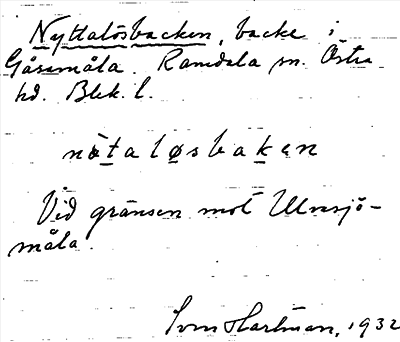 Nyttalösbacken, backe i
Gåsamåla. Ramdala sn. Östra
hd. Blek. l.
nòtaløsbakan
Vid gränsen mot Ulvasjö-
måla.
Sven Hartman, 1932